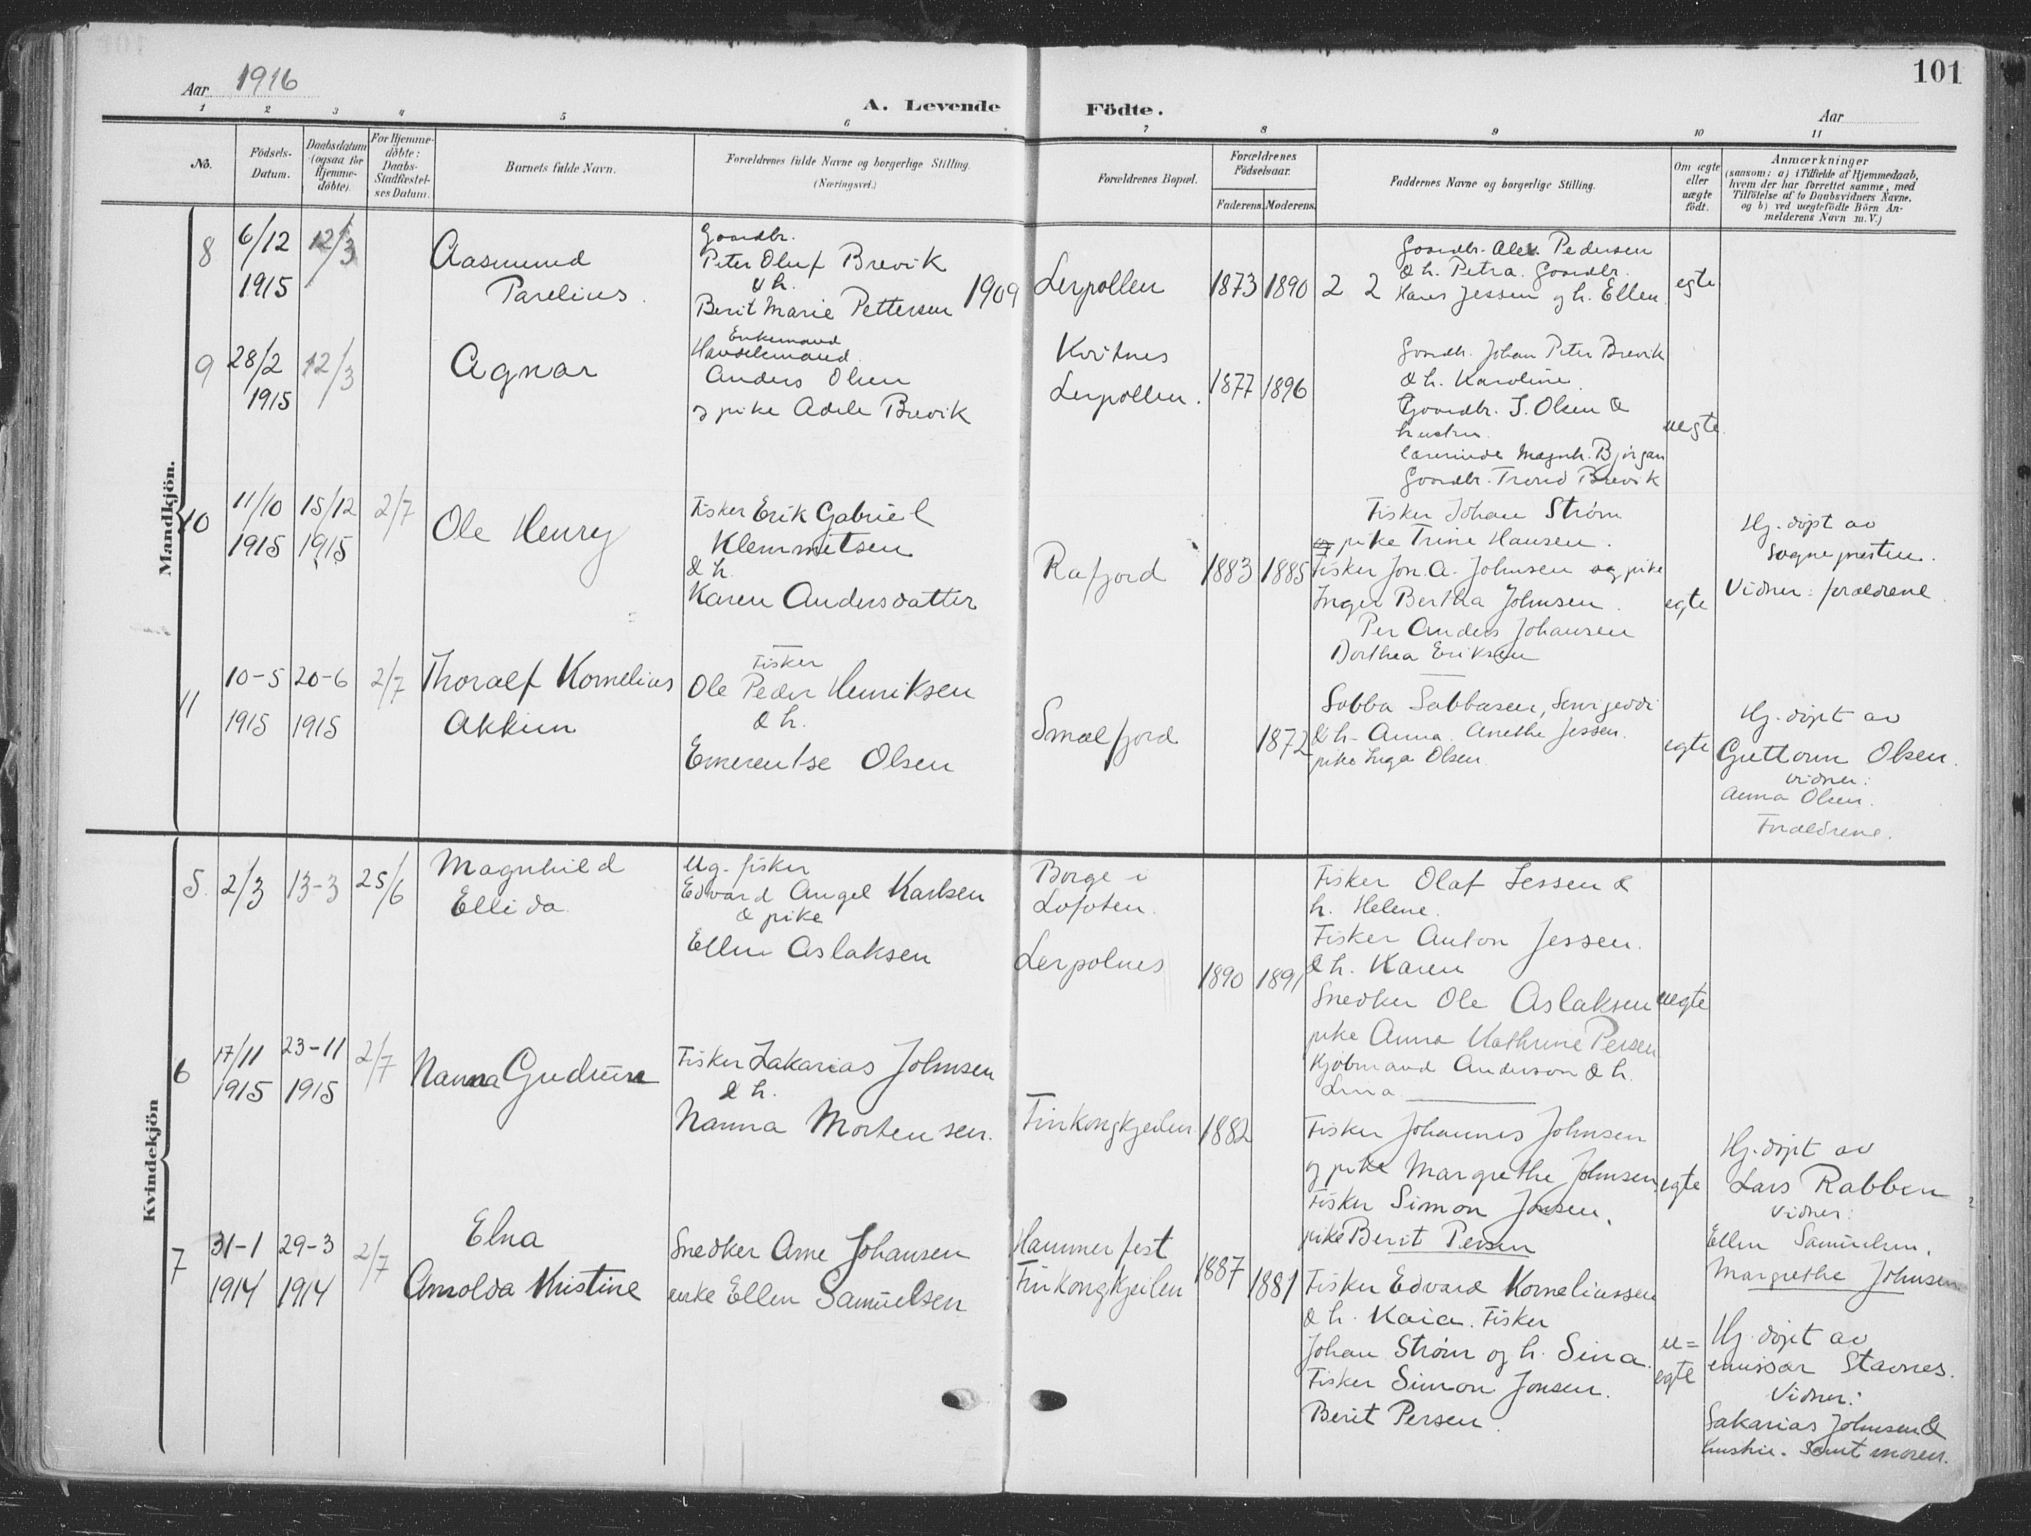 101
Aar 1916
A. Levende Födte.
Aar
1 2 3 4 5 6 7 8 9 10 11
No.
Födsels-Datum.
Daabsdatum (ogsaa for Hjemme-döbte).
For Hjemme-döbte: Daabs-Stadfæstel-ses Datum.
Barnets fulde Navn.
Forældrenes fulde Navne og borgerlige Stilling.
(Næringsvei.)
Forældrenes Bopæl.
Forældrenes Födselsaar.
Faderens. Moderens.
Faddernes Navne og borgerlige Stilling.
Om ægte eller uægte födt.
Anmærkninger
(saasom: a) i Tilfælde af Hjemmedaab,
hvem der har forrettet samme, med
Tilföielse af to Daabsvidners Navne,
og b) ved uægtefödte Börn An-
melderens Navn m. V.)
Mandkjön.
8
6/12
1915
12/3
Aasmund
Parelius.
Gaardbr.
Peter Oluf Brevik
& h.
Berit Marie Pettersen 1909
Lerpollen
1873 1890
2 2
Gaardbr. Alex. Pedersen
& h. Petra. Gaardbr.
Hans Jessen og h. Ellen.
egte
9
28/2
1915
12/3
Agnar
Enkemand
Handelsmand
Anders Olsen
og pike Adele Brevik
Kvitnes
Lerpollen.
1877 1896
Gaardb. Johan Peter Brevik
& h. Karoline.
Gaardbr. S. Olsen &
hustru.
lærerinde Magnh. Bjørgan
Gaardbr. Trond Brevik
uegte
10
11/10
1915
15/12
1915
2/7
Ole Henry
Fisker Erik Gabriel
Klemmetsen
& h.
Karen Andersdatter
Rafjord
1883 1885
Fisker Johan Strøm
og pike Trine Hansen.
Fisker Jon. A. Johnsen og pike
Inger Bertha Johnsen.
Per Anders Johansen
Dorthea Eriksen
egte
Hj. døpt av
Sognepresten.
Vidner: forældrene
11
10-5
1915
20-6
1915
2/7
Thoralf Kornelius
Akkim
Fisker
Ole Peder Henriksen
& h.
Emerentse Olsen
Smalfjord
1872
Sabba Sabbasen,
& h. Anna. Anethe Jessen.
pike Inga Olsen.
egte
Hj. døpt av
Guttorm Olsen.
vidner:
Anna Olsen.
Forældrene.
Kvindekjön
5.
2/3
13-3
25/6
Magnhild
Ellida
Ug. fisker
Edvard Angel Karlsen
& pike
Ellen Aslaksen
Borge i
Lofoten.
Lerpolnes
1890 1891
Fisker Olaf Jessen &
h. Helene.
Fisker Anton Jessen.
& h. Karen
Snedker Ole Aslaksen
pike Anna Kathrine Persen
Kjøbmand Anderson & h.
Lina.
uegte
6
17/11
1915
23-11
1915
2/7
Nanna Gudrun
Fisker Zakarias Johnsen
& h.
Nanna Mortensen.
Finkongkjeilen
1882
Fisker Johannes Johnsen
og pike Margrethe Johnsen
Fisker Simon Jonsen.
pike Berit Persen
egte
Hj. døpt av
Lars Rabben
Vidner:
Ellen Samuelsen.
Margrethe Johnsen
7
31-1
1914
29-3
1914
2/7
Elna
Arnolda Kristine
Snedker Arne Johansen
enke Ellen Samuelsen
Hammerfest
Finkongkjeilen
1887 1881
Fisker Edvard Korneliussen
& h. Kaia. Fisker
Johan Strøm og h. Sina.
Fisker Simon Jonsen.
Berit Persen.
u=
egte
Hj. døpt av
emissær Stavnes.
Vidner:
Sakarias Johnsen &
hustru. Samt moren.